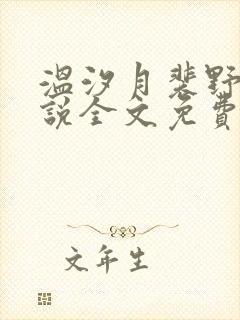 温汐月裴野
説全文免費
文年生